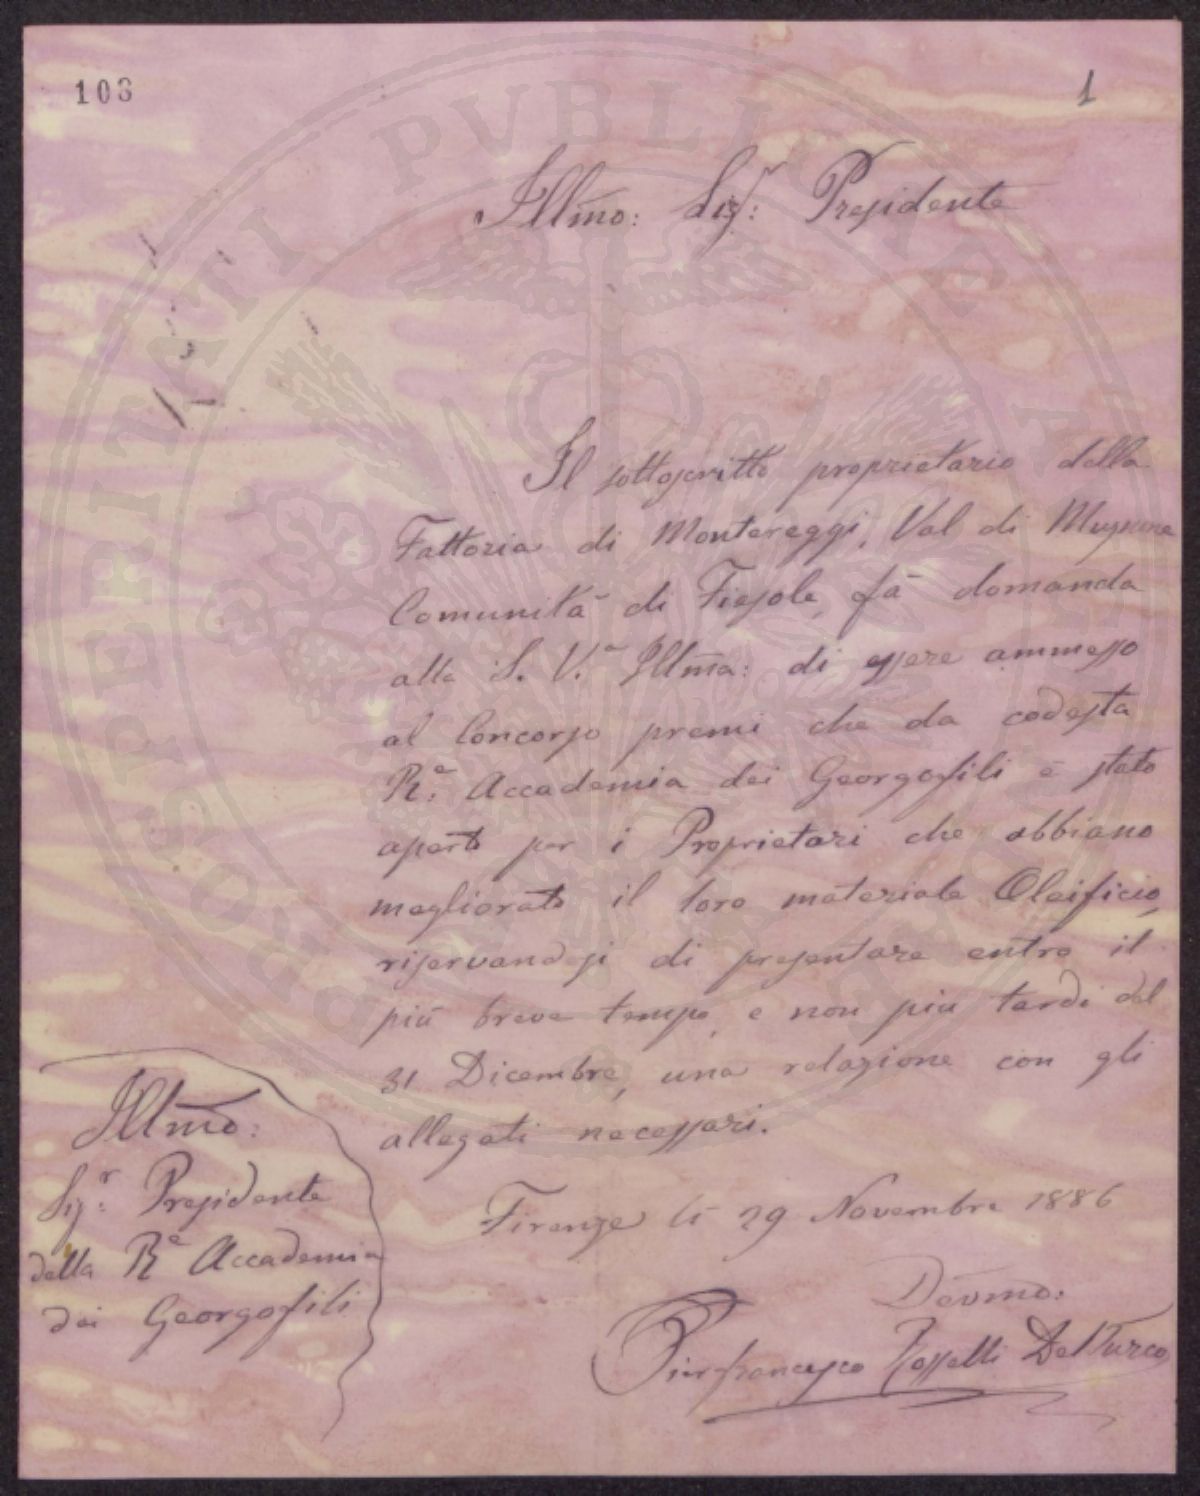 103
1
Illmo: Sigr: Presidente
Il sottoscritto proprietario della
Fattoria di Montereggi, Val di Mugnone
Comunità di Fiesole, fà domanda
alla S. V.a Illma: di essere ammesso
al Concorso premi che da codesta
R.e Accademia dei Georgofili è stato
aperto per i Proprietari che abbiano
megliorato il loro materiale Oleificio,
riservandosi di presentare entro il
più breve tempo, e non più tardi del
31 Dicembre, una relazione con gli
allegati necessari.
Firenze lì 29 Novembre 1886
Devmo:
Pierfrancesco Rosselli Del Turco
Illmo:
Sig.r: Presidente
della Re Accademia
dei Georgofili
PROSPERITATI PVBLICAE AVGENDAE